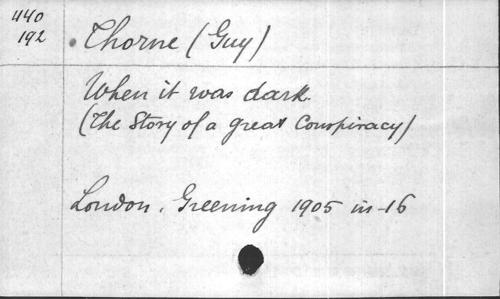 440
192
Thorne (Guy)
When it was dark.
(The Story of a great Conspiracy)
London, Greening 1905 in-16